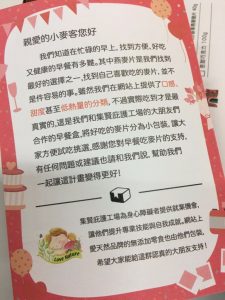 親愛的小麥客您好
我們知道在忙碌的早上, 找到方便, 好吃
又健康的早餐有多難, 其中燕麥片是我們找到
最好的選擇之一, 找到自己喜歡吃的麥片, 並不
是件容易的事, 雖然我們在網站上提供了口感,
甜度甚至低熱量的分類, 不過實際吃到才是最
真實的, 這是我們和集賢庇護工場的大朋友們
合作的早餐盒, 將好吃的麥片分為小包裝, 讓大
家方便試吃挑選, 感謝您對早餐吃麥片的支持,
有任何問題或建議也請和我們說, 幫助我們
一起讓這計畫變得更好!
集賢庇護工場為身心障礙者提供就業機會,
讓他們提升專業技能與自我成就, 網站上
愛天然品牌的無添加零食也由他們包裝,
希望大家能給這群認真的大朋友支持!
Love Nature